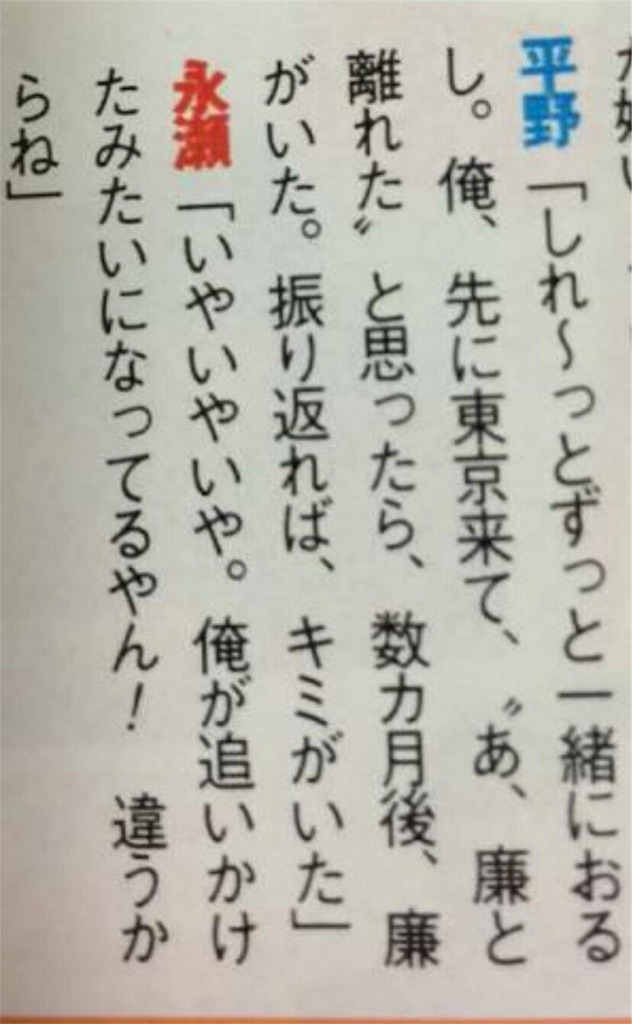 平野「しれ〜っとずっと一緒におる
し。俺、先に東京来て、〝あ、廉と
離れた〟と思ったら、数カ月後、廉
がいた。振り返れば、キミがいた」
永瀬「いやいやいや。俺が追いかけ
たみたいになってるやん！　違うか
らね」